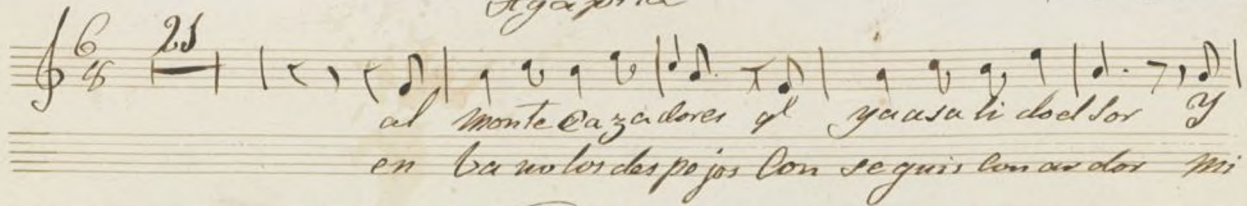 Agapita
6
8
25
al monte cazadores q̄l ya a sa li do el sor Y
en ba no los des pe jos Con se guis Con ar dor mi